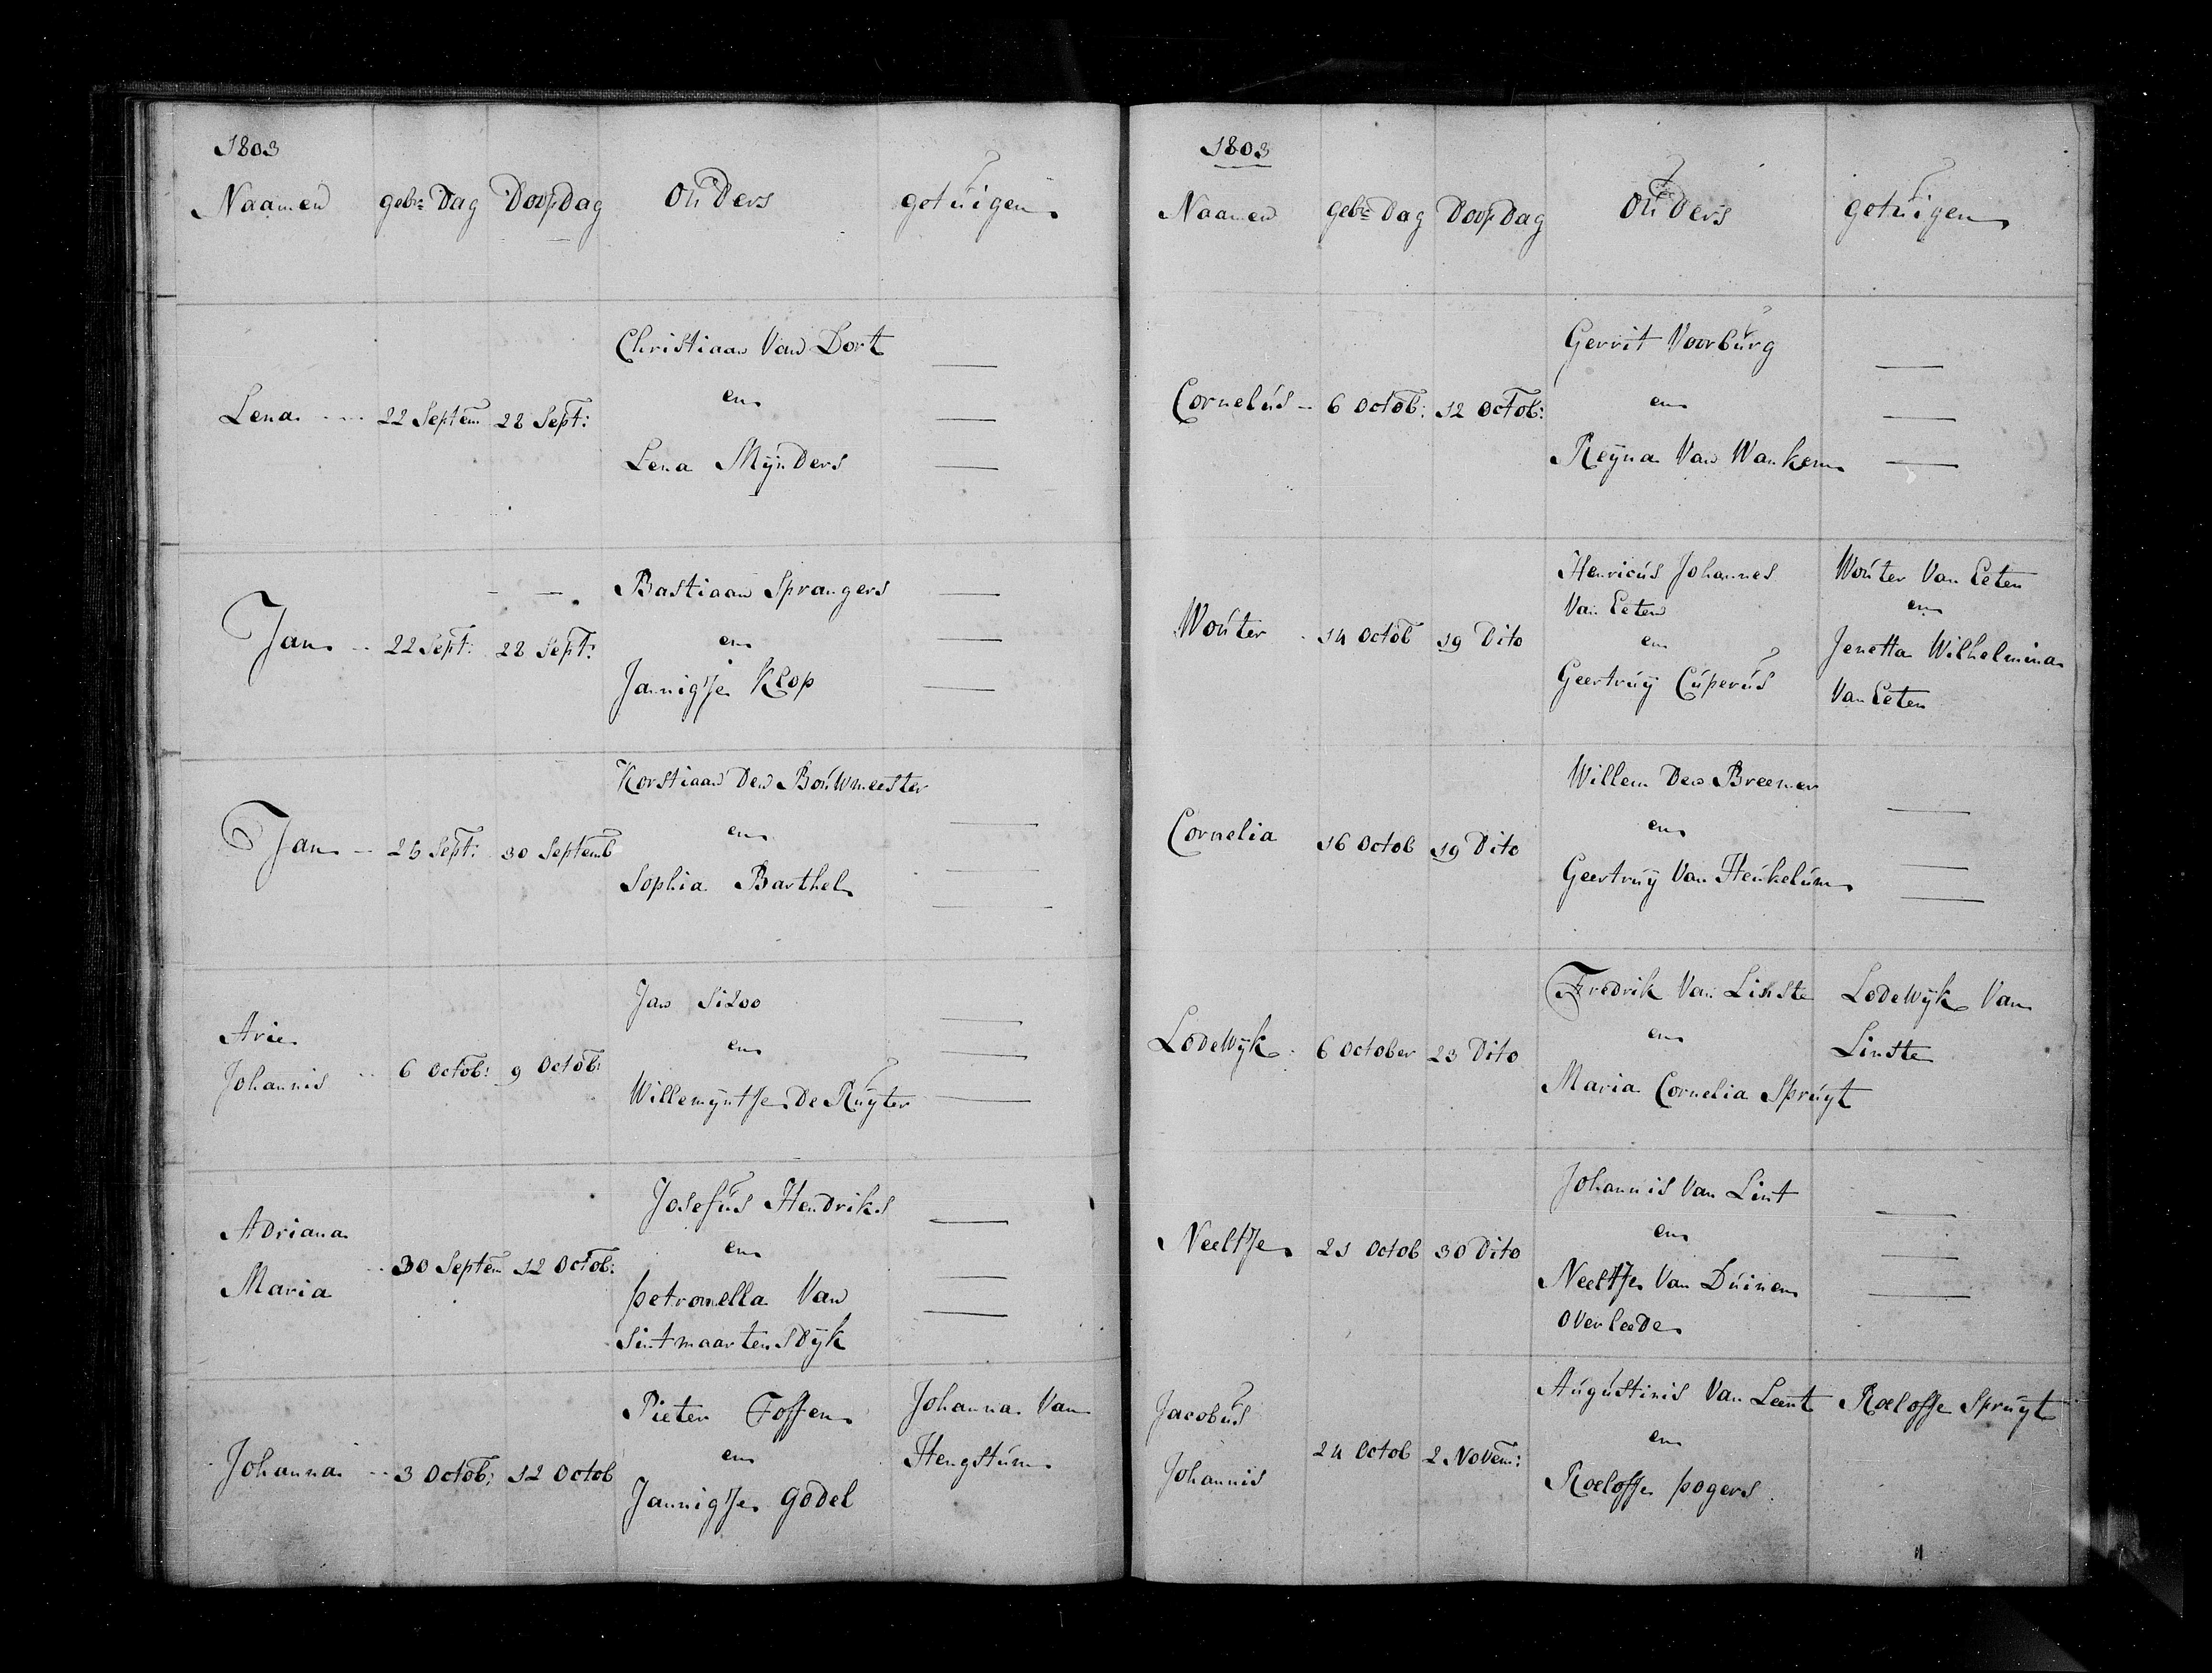 1803
Naamen gebr: Dag DoopDag OuDers getuigen
Christiaan Van Dort
Lena 22 Septem 28 Sept:
en
Lena MijnDers
Bastiaan Sprangers
Jan 22 Sept: 28 Sept:
en
Jannigje Klop
Korstiaan Den Bouwmeester
Jan 25 Sept: 30 Septemb
en
Sophia Barthel
Jan Sizoo
Arie
en
Johannis 6 Octob: 9 Octob:
Willemijntje De Ruyter
Josefus Hendriks
Adriana
en
Maria 30 Septem 12 Octob:
petronella Van
Sintmaartensdijk
Pieter Fossen Johanna Van
Johanna 3 Octob: 12 Octob
en Hengstum
Jannigje Godel
1803
Naamen gebr: Dag DoopDag OuDers getuigen
Gerrit Voorburg
Cornelus 6 Octob: 12 Octob:
en
Reijna Van Wanken
Henricus Johannes Wouter Van Eeten
Van Eeten en
Wouter 14 Octob 19 Dito
en Jenetta Wilhelmina
Geertruij Cuperus Van Eeten
Willem Den Breemer
Cornelia 16 Octob 19 Dito
en
Geertruij Van Heukelum
Fredrik Van Linste Lodewijk Van
en Linste
Lodewijk 6 October 23 Dito
Maria Cornelia Spruyt
Johannis Van Lint
en
Neeltje 21 Octob 30 Dito
Neeltje Van Duinen
overleeden
Augustinis Van Leent Roeloffje Spruyt
Jacobus
en
Johannis 24 Octob 2 Novem:
Roeloffje pogers